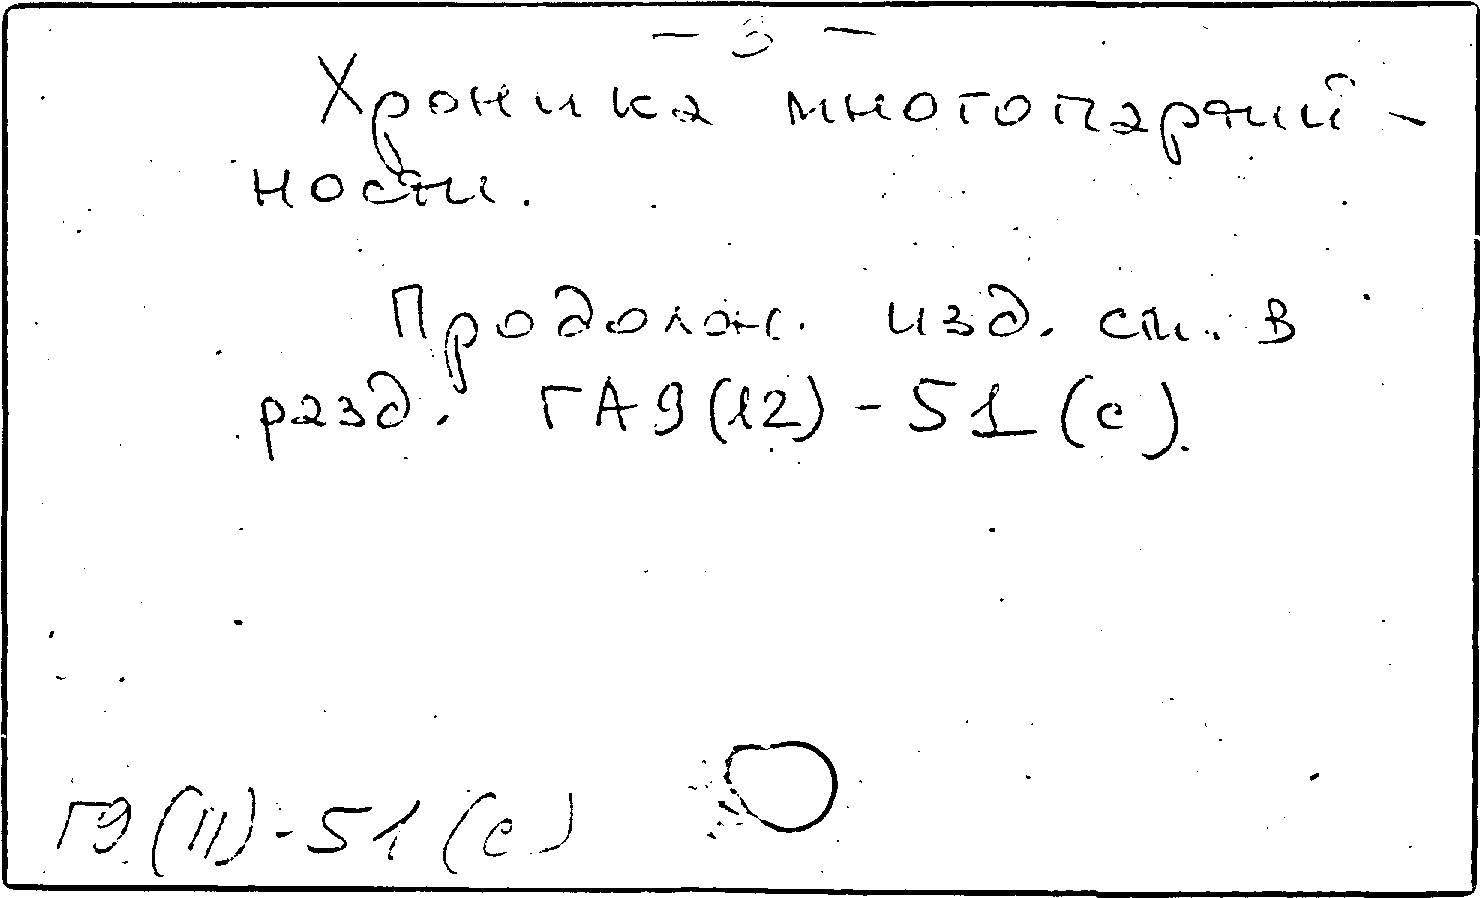 - 3 -
Хроника многопартий-
ности.
Продолж. изд. см. в
разд. ГА9(12)-51(с).
Г9(11)-51(с)